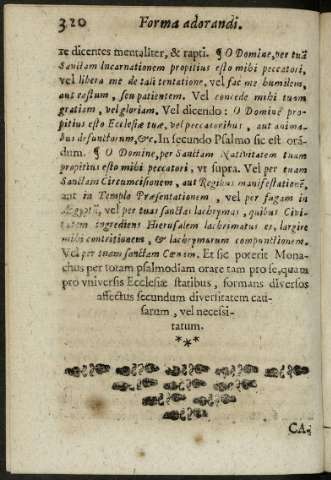 320 Forma adorandi.
re dicentes mentaliter, & rapti. ¶ O Domine, per tuã
Sanctam Incarnationem propitius esto mihi peccatori,
vel libera me de tali tentatione, vel fac me humilem,
aut castum, seu patientem. Vel concede mihi tuam
gratiam, vel gloriam. Vel dicendo: O Dominè pro-
pitius esto Ecclesiæ tuæ, vel peccatoribus, aut anima-
bus defunctorum, &c. In secundo Psalmo sic est orã-
dum. ¶ O Domine, per Sanctam Nativitatem tuam
propitius esto mihi peccatori, vt supra. Vel per tuam
Sanctam Circumcisionem, aut Regibus manifestationẽ,
aut in Templo Præsentationem, vel per fugam in
Ægyptũ, vel per tuas sanctas lachrymas, quibus Civi-
tatem ingrediens Hierusalem lachrimatus es, largire
mihi contritionem, & lachrymarum compunctionem.
Vel per tuam sanctam Cœnam. Et sic poterit Mona-
chus per totam psalmodiam orare tam pro se, quam
pro vniversis Ecclesiæ statibus, formans diversos
affectus secundum diversitatem cau-
sarum, vel necessi-
tatum.
***
CA-